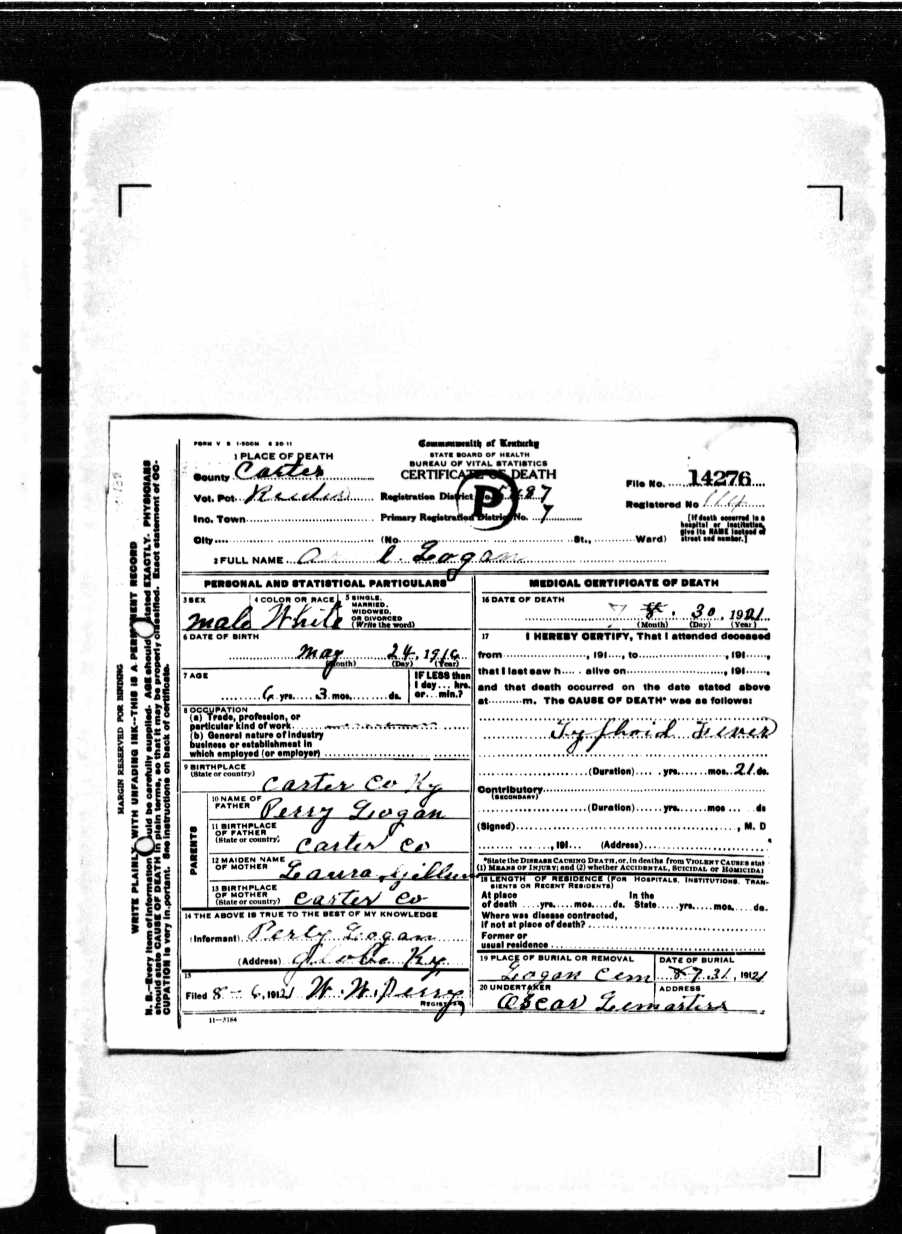 FORM V S 1-500M 8 20 11
Commonwealth of Kentucky
STATE BOARD OF HEALTH
BUREAU OF VITAL STATISTICS
CERTIFICATE OF DEATH
1 PLACE OF DEATH
County Carter
Vot. Pct.
Inc. Town
City (No. St., Ward)
Registration District No.
Primary Registration District No. 7
P
File No. 14276
Registered No
[If death occurred in a hospital or institution, give its NAME instead of street and number.]
2 FULL NAME L. Logan
PERSONAL AND STATISTICAL PARTICULARS
3 SEX
male
4 COLOR OR RACE
White
5 SINGLE, MARRIED, WIDOWED, OR DIVORCED (Write the word)
6 DATE OF BIRTH
May 24, 1916
(Month) (Day) (Year)
7 AGE
6 yrs. 3 mos. ds.
IF LESS than 1 day... hrs. or... min.?
8 OCCUPATION
(a) Trade, profession, or particular kind of work
(b) General nature of industry business or establishment in which employed (or employer)
9 BIRTHPLACE
(State or country)
Carter Co Ky
PARENTS
10 NAME OF FATHER Perry Logan
11 BIRTHPLACE OF FATHER (State or country) Carter Co
12 MAIDEN NAME OF MOTHER Laura
13 BIRTHPLACE OF MOTHER (State or country) Carter Co
14 THE ABOVE IS TRUE TO THE BEST OF MY KNOWLEDGE
(Informant) Perry Logan
(Address) Globe Ky.
15
Filed 8-6, 1921 W. W. Perry
REGISTRAR
11-3184
MEDICAL CERTIFICATE OF DEATH
16 DATE OF DEATH
7 8. 30, 1921
(Month) (Day) (Year)
17 I HEREBY CERTIFY, That I attended deceased
from , 191 , to , 191 ,
that I last saw h alive on , 191 ,
and that death occurred on the date stated above
at m. The CAUSE OF DEATH* was as follows:
Typhoid Fever
(Duration) yrs. mos. 21 ds.
Contributory
(SECONDARY)
(Duration) yrs. mos ds
(Signed) , M. D
, 191 (Address)
*State the DISEASE CAUSING DEATH, or, in deaths from VIOLENT CAUSES stat
(1) MEANS OF INJURY; and (2) whether ACCIDENTAL, SUICIDAL or HOMICIDAL
18 LENGTH OF RESIDENCE (FOR HOSPITALS, INSTITUTIONS, TRAN-
SIENTS OR RECENT RESIDENTS)
At place of death yrs. mos. ds. In the State yrs. mos. ds.
Where was disease contracted,
if not at place of death?
Former or
usual residence
19 PLACE OF BURIAL OR REMOVAL
Logan Cem
DATE OF BURIAL
8 7. 31, 1921
20 UNDERTAKER
Oscar Lemasters
ADDRESS
MARGIN RESERVED FOR BINDING
WRITE PLAINLY WITH UNFADING INK--THIS IS A PERMANENT RECORD
N. B.--Every item of information should be carefully supplied. AGE should be stated EXACTLY. PHYSICIANS
should state CAUSE OF DEATH in plain terms, so that it may be properly classified. Exact statement of OC-
CUPATION is very important. See instructions on back of certificate.